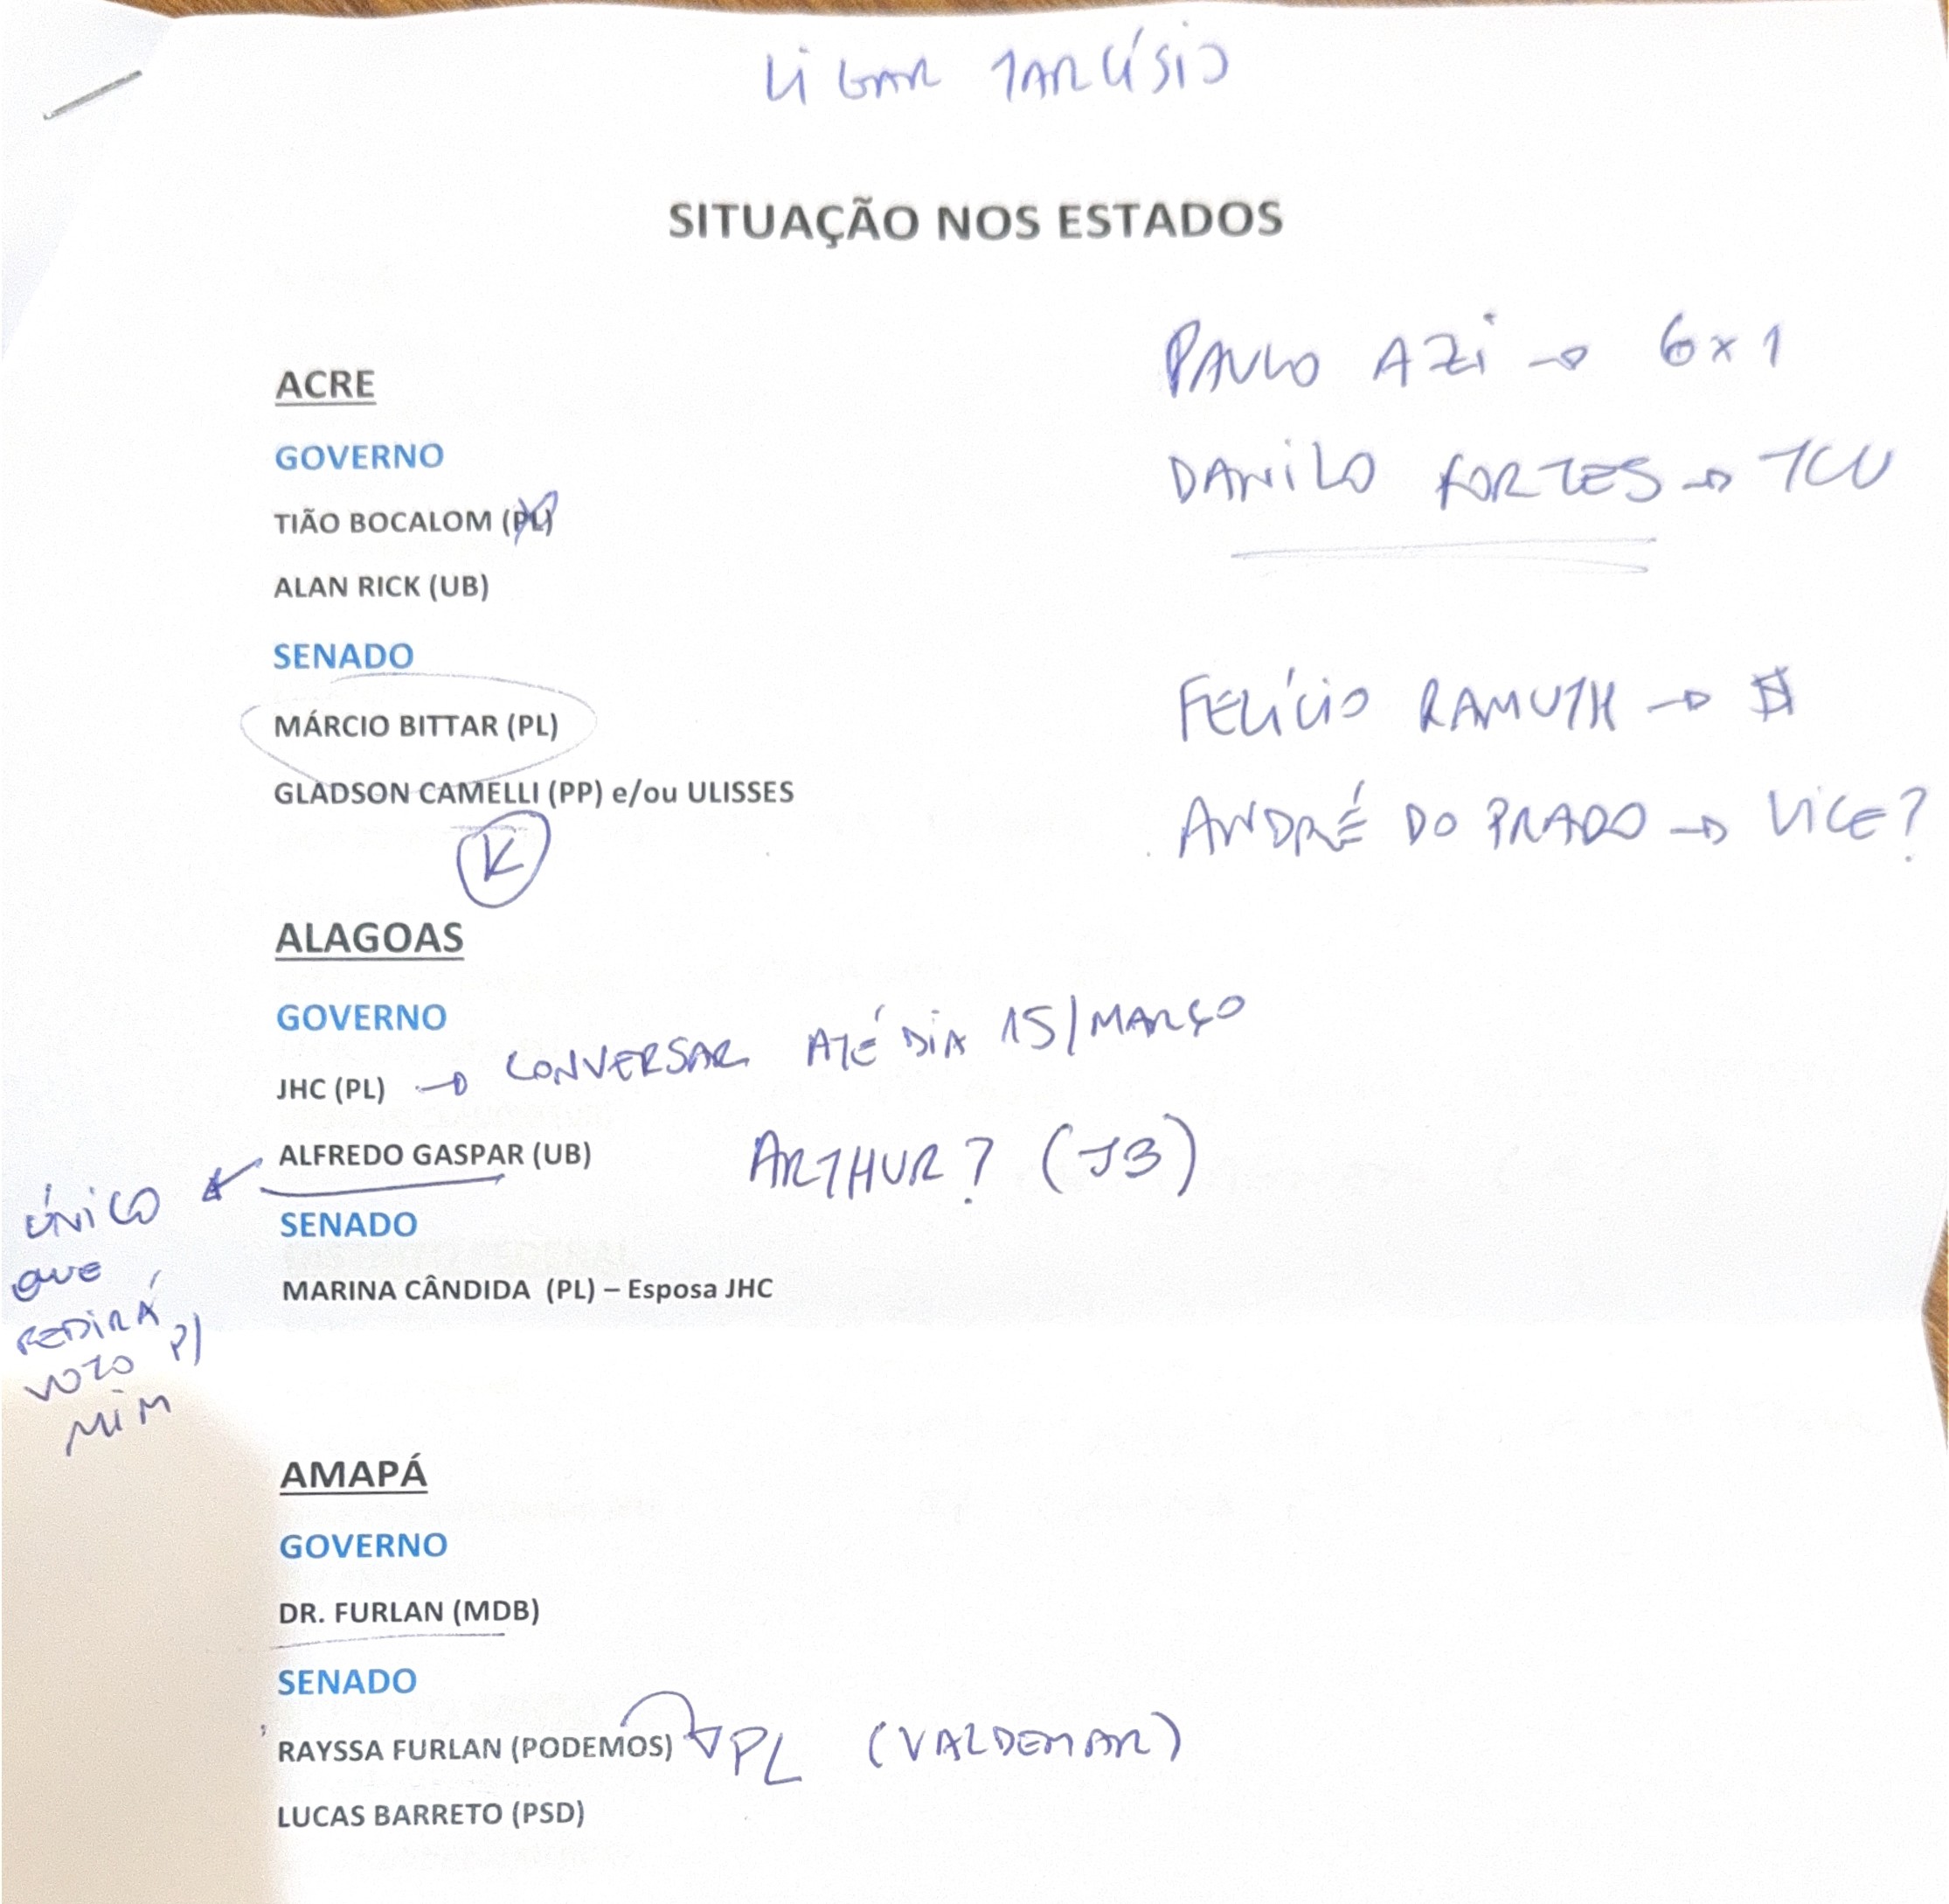 LIGAR TARCÍSIO
SITUAÇÃO NOS ESTADOS
PAULO AZI → 6x1
DANILO FORTES → TCU
FELÍCIO RAMUTH → $
ANDRÉ DO PRADO → VICE?
ACRE
GOVERNO
TIÃO BOCALOM (PL)
ALAN RICK (UB)
SENADO
MÁRCIO BITTAR (PL)
GLADSON CAMELLI (PP) e/ou ULISSES
K
ALAGOAS
GOVERNO
JHC (PL) → CONVERSAR ATÉ DIA 15/MARÇO
ALFREDO GASPAR (UB)
ARTHUR? (JB)
ÚNICO
QUE
PEDIRÁ
VOTO P/
MIM
SENADO
MARINA CÂNDIDA (PL) – Esposa JHC
AMAPÁ
GOVERNO
DR. FURLAN (MDB)
SENADO
RAYSSA FURLAN (PODEMOS) → PL (VALDEMAR)
LUCAS BARRETO (PSD)